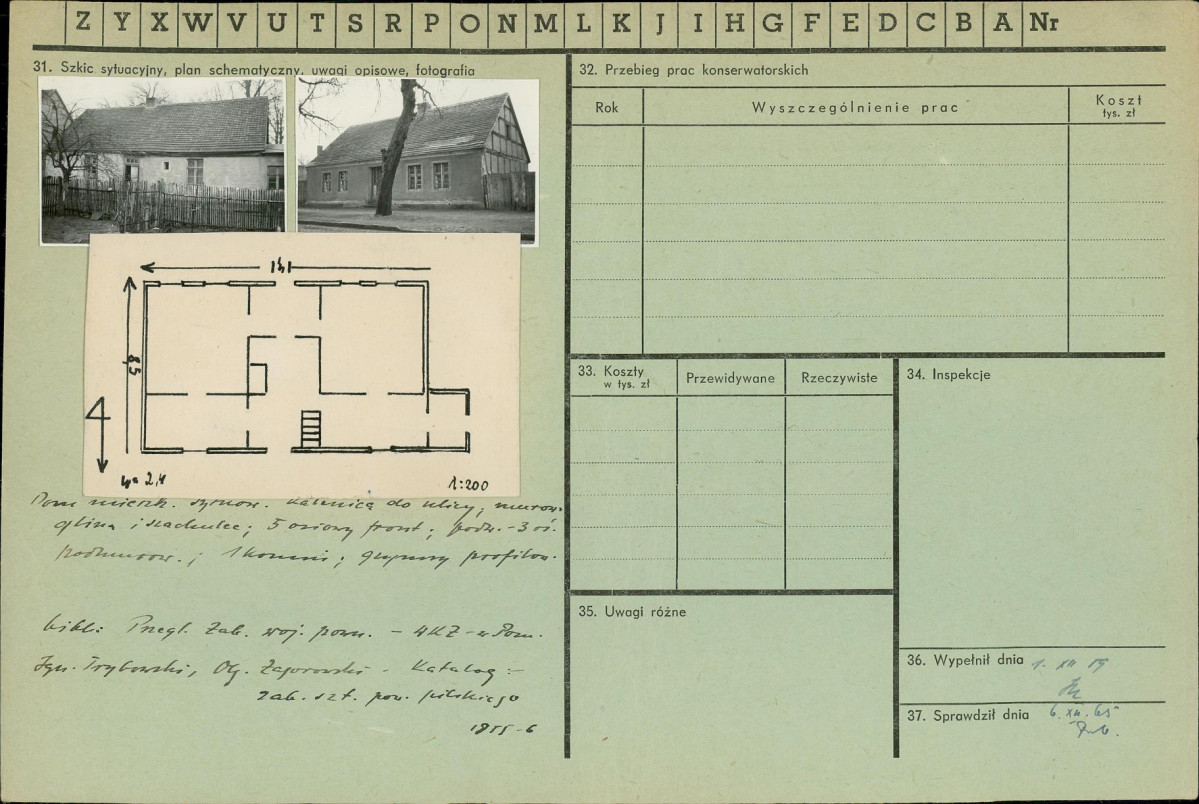 Z Y X W V U T S R P O N M L K J I H G F E D C B A Nr
31. Szkic sytuacyjny, plan schematyczny, uwagi opisowe, fotografia
14,1
8,5
h= 2,4
1:200
Dom mieszk. szerow. do ulicy; murow.
glina i szachulec; 5 osiowy front; podw. - 3 oś.
podmurow.; 1 komin; gzymsy profilow.
bibl: Przegl. Zab. woj. pozn. - WKZ - w Pozn.
Ign. Trybowski, Olg. Zagorowski - Katalog -
zab. szt. pow. pilskiego
1955-6
32. Przebieg prac konserwatorskich
Rok
Wyszczególnienie prac
Koszt
tys. zł
33. Koszty
w tys. zł
Przewidywane
Rzeczywiste
34. Inspekcje
35. Uwagi różne
36. Wypełnił dnia 1. XII 59
37. Sprawdził dnia 6. XII. 65